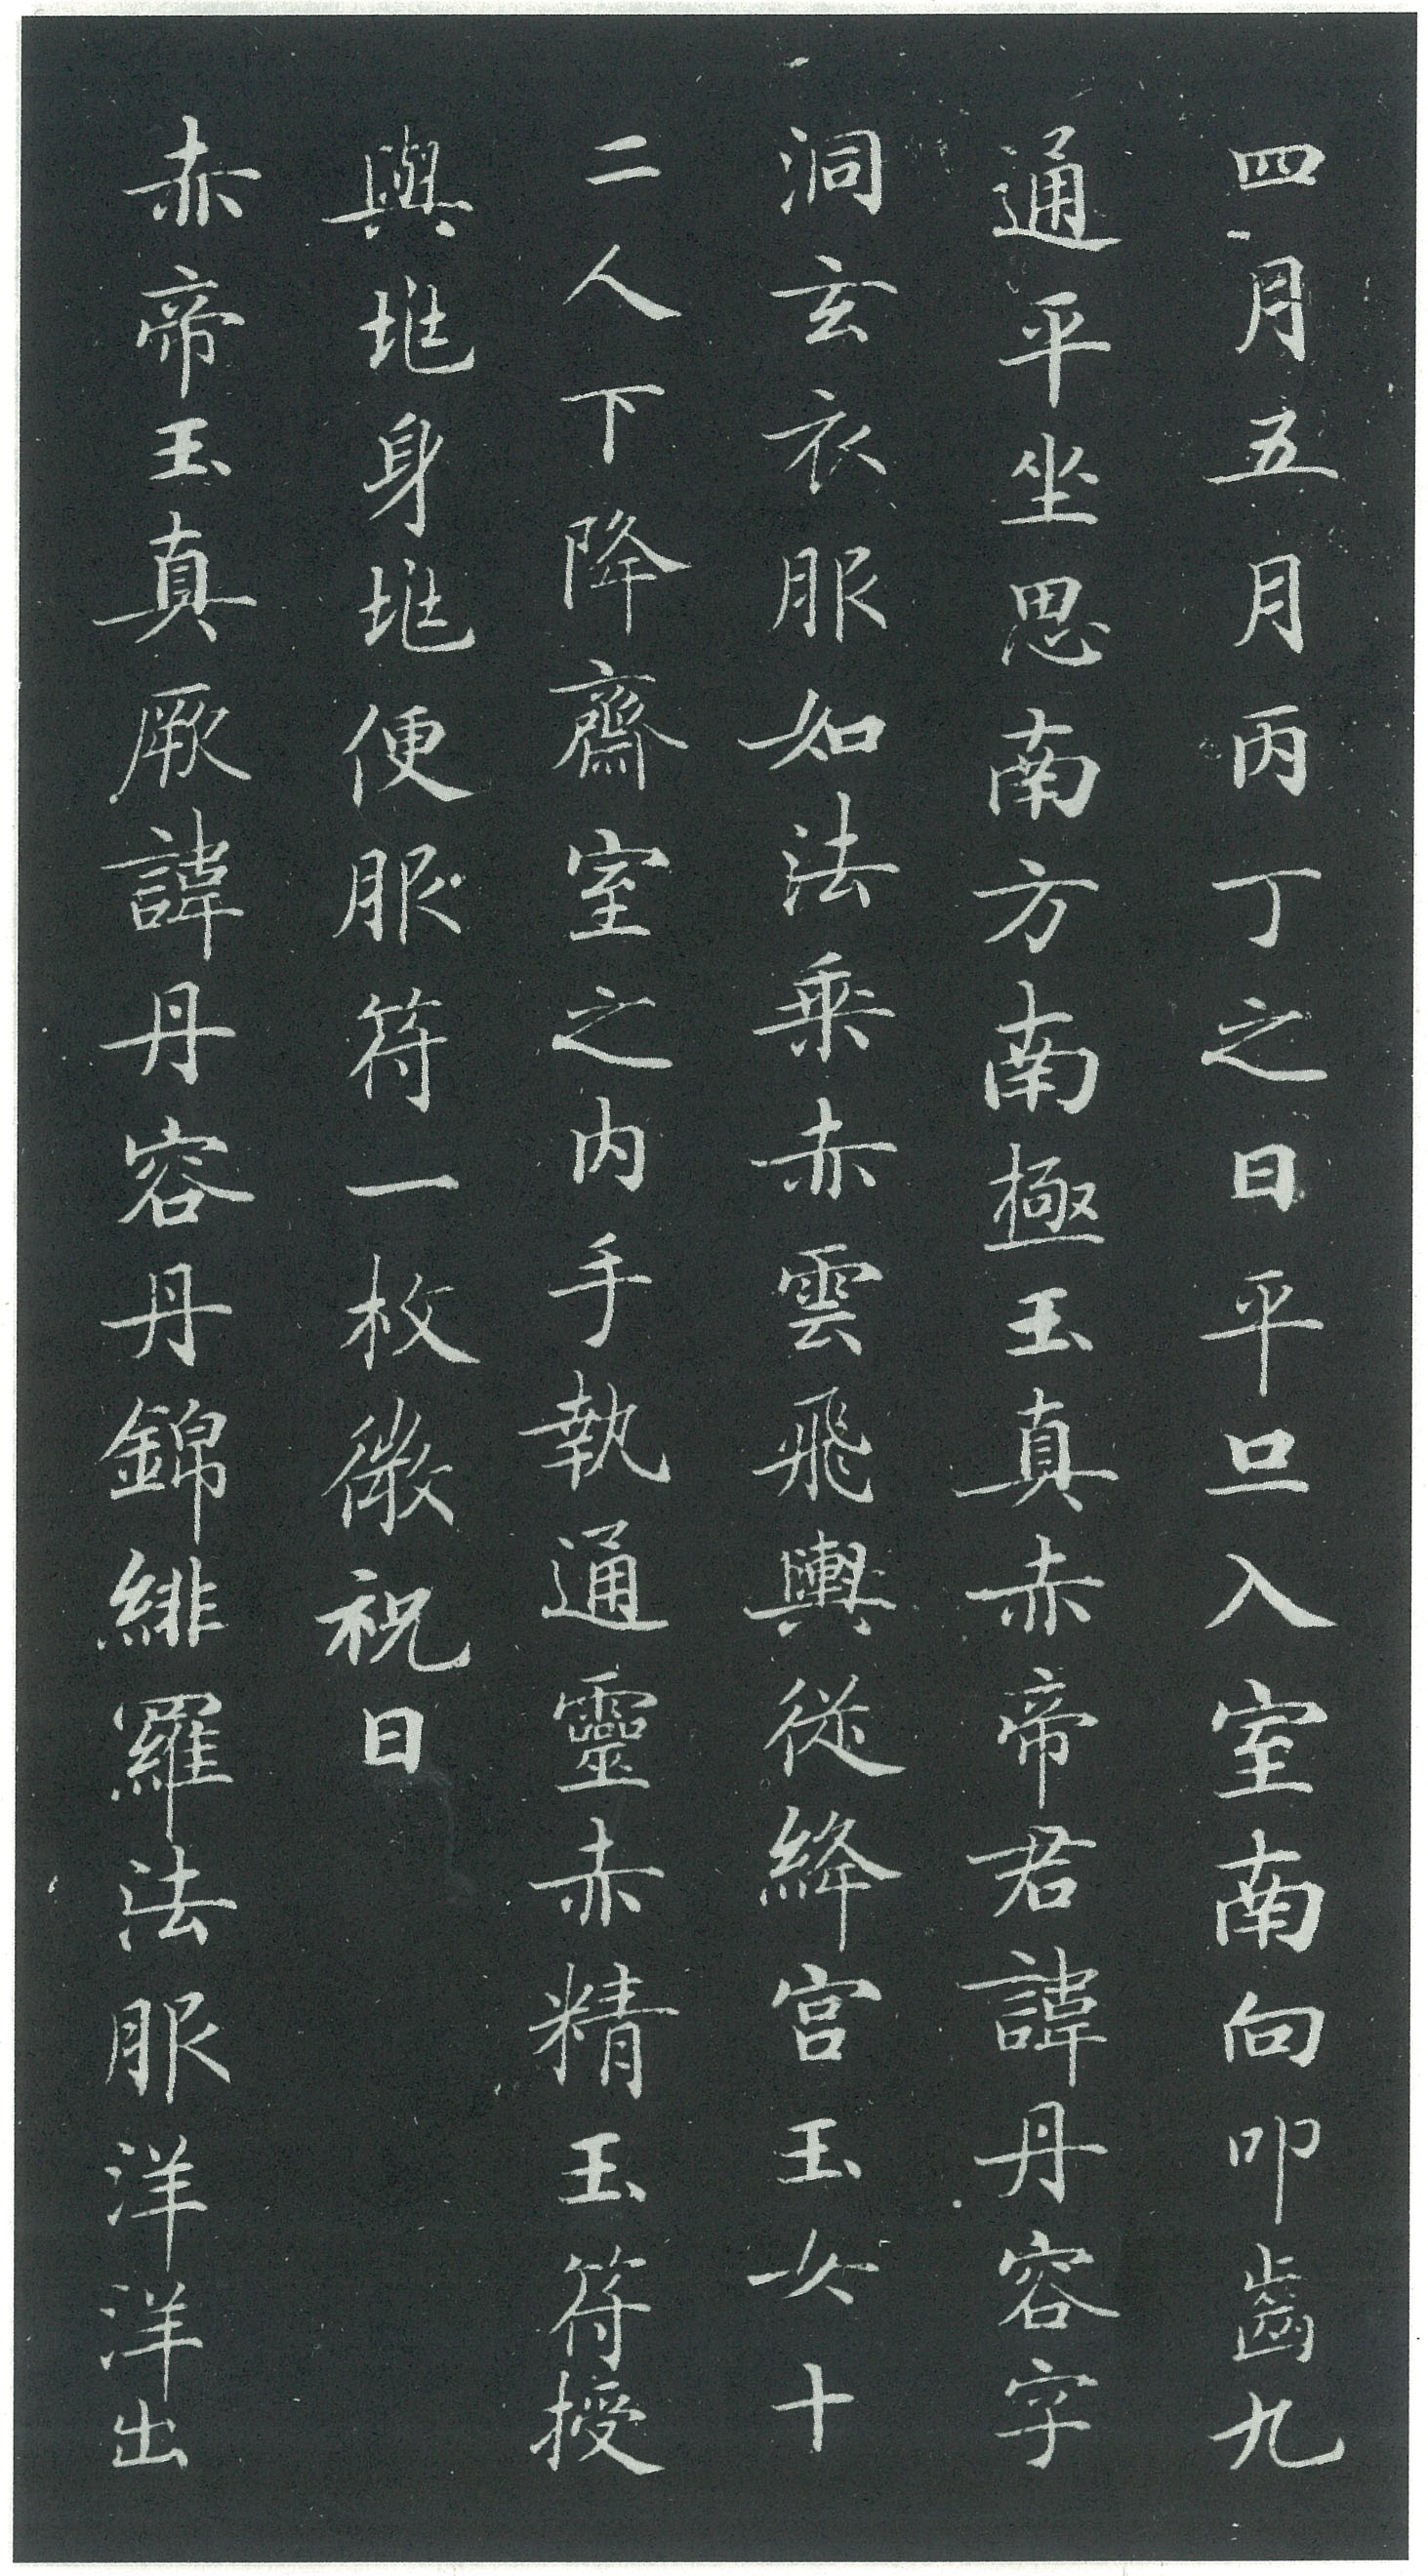 四月五月丙丁之日平旦入室南向叩齒九
通平坐思南方南極玉真赤帝君諱丹容字
洞玄衣服如法乘赤雲飛輿從絳宮玉女十
二人下降齋室之內手執通靈赤精玉符授
與兆身兆便服符一枚微祝曰
赤帝玉真厥諱丹容丹錦緋羅法服洋洋出